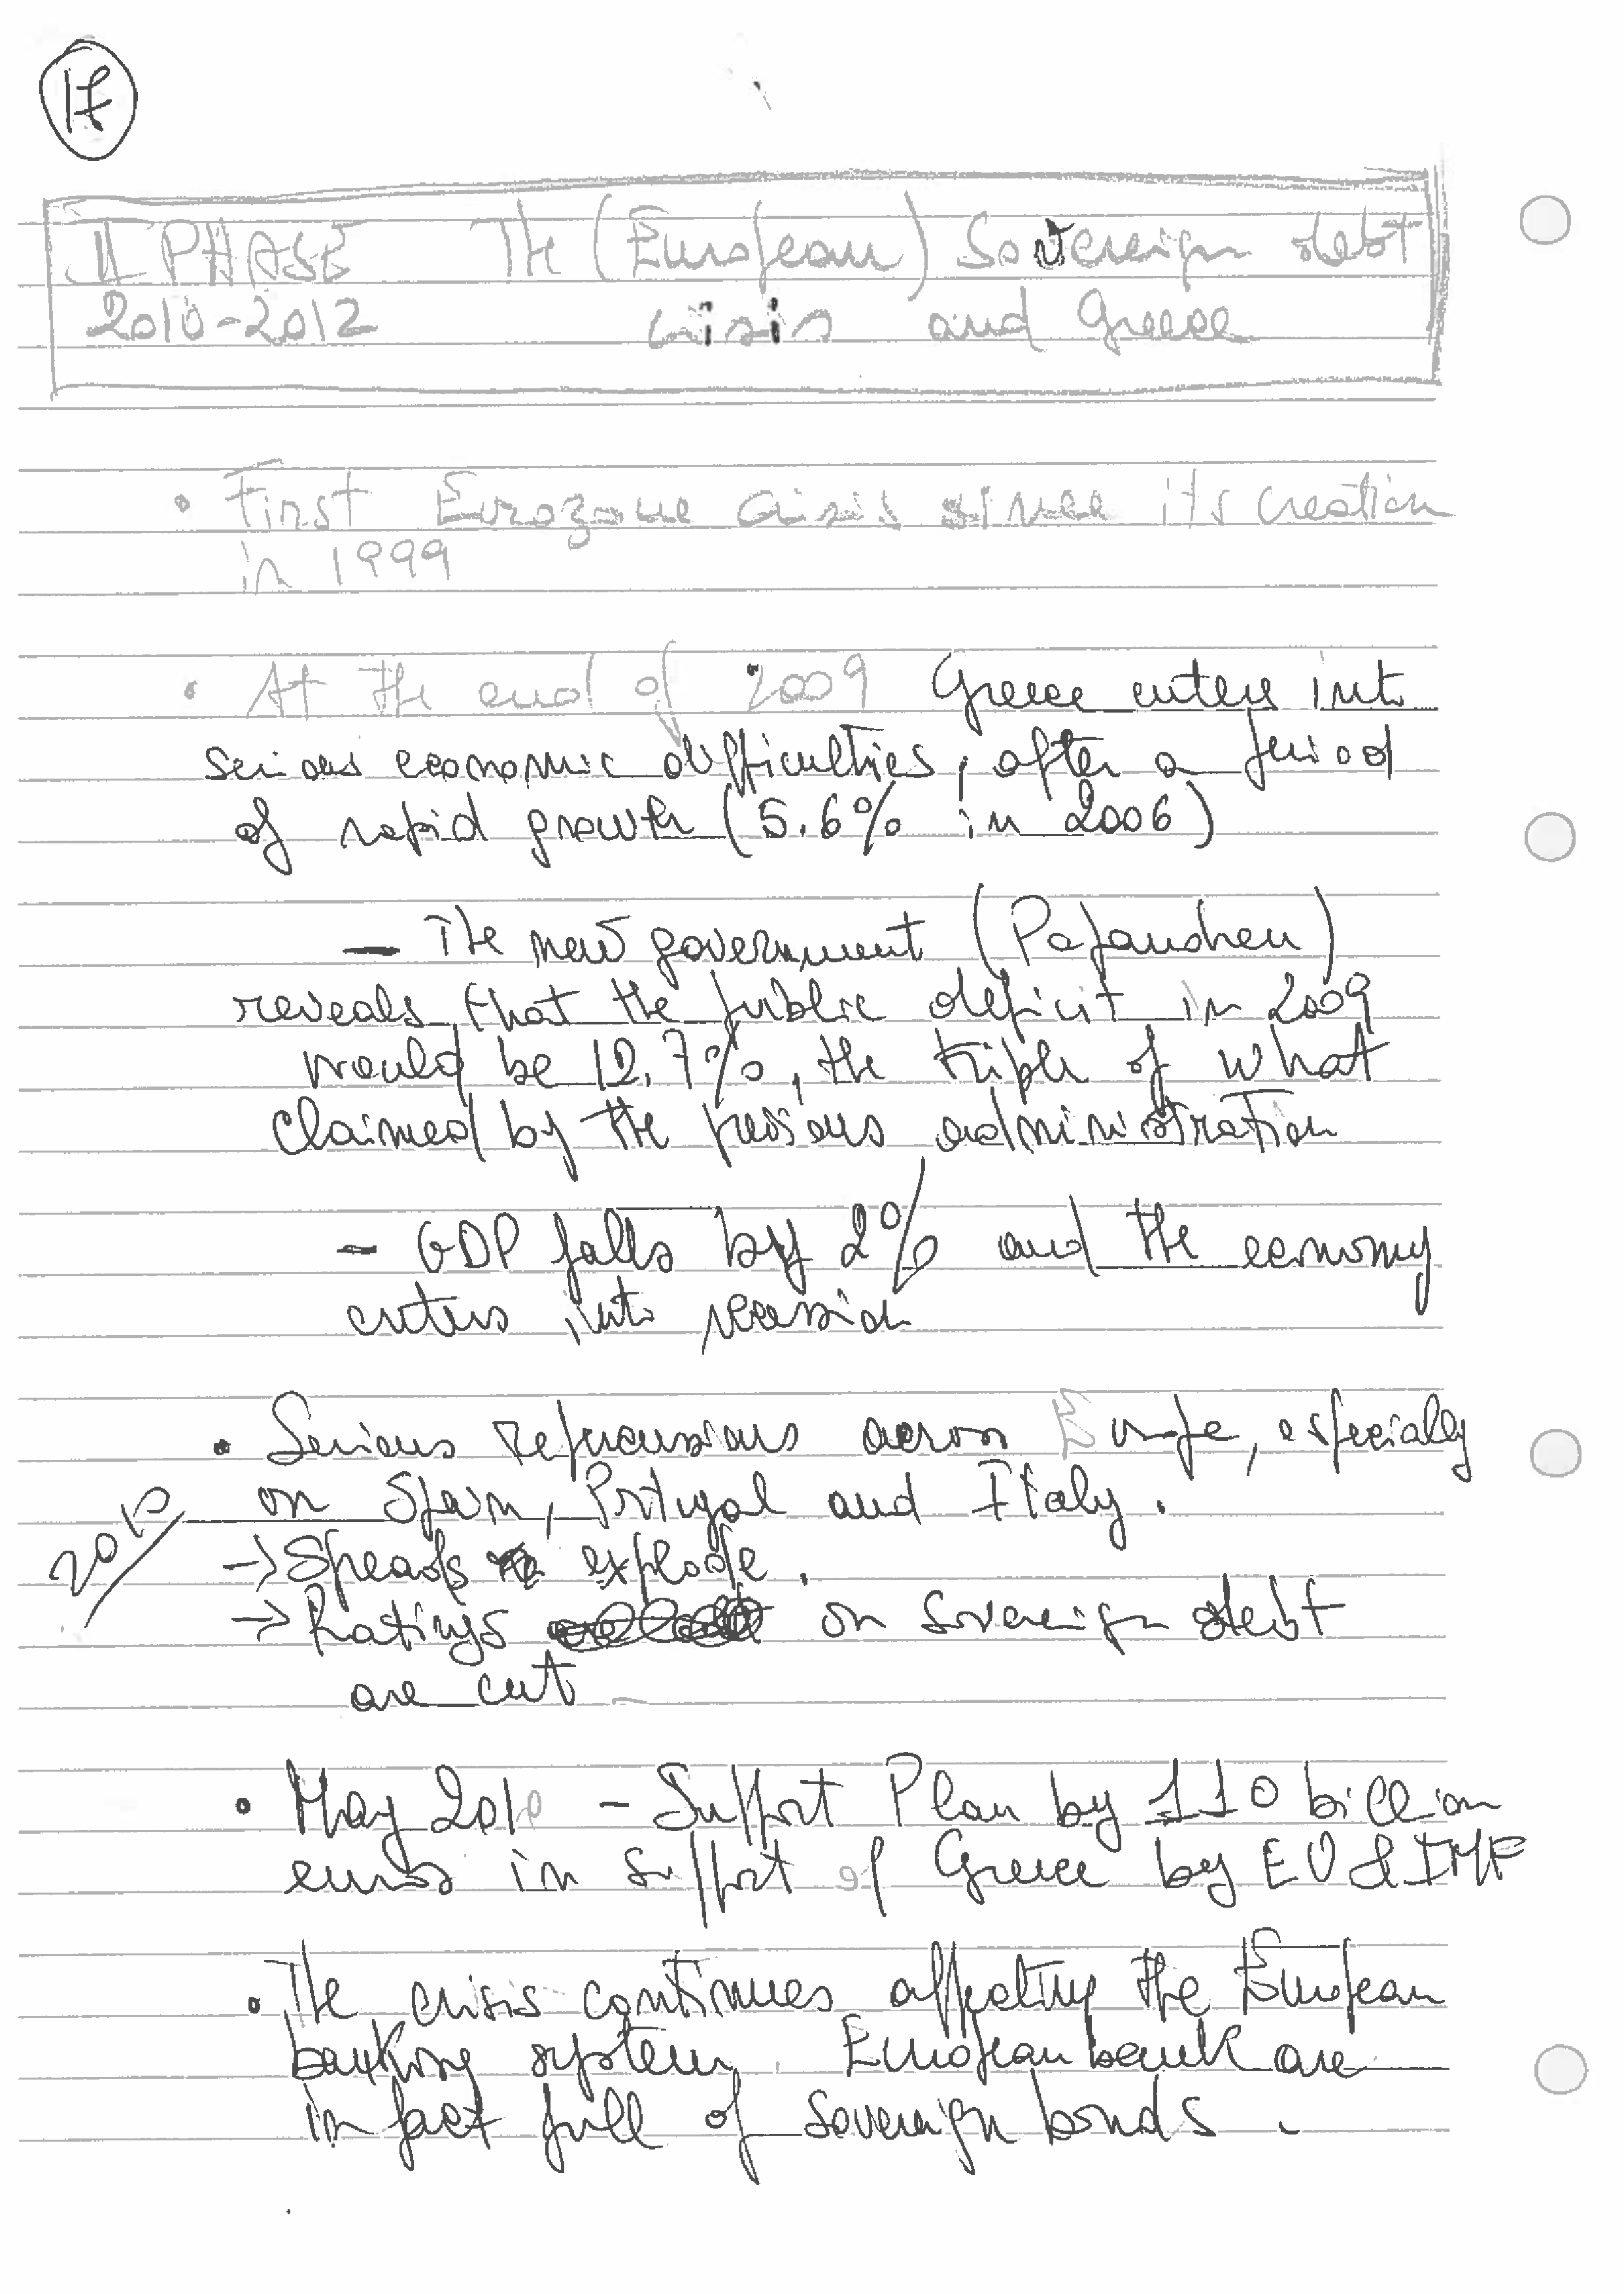 17
II PHASE The (European) Sovereign debt
2010-2012 crisis and Greece
• First Eurozone crisis since its creation
in 1999
• At the end of 2009 Greece enters into
serious economic difficulties, after a period
of rapid growth (5.6% in 2006)
— The new government (Papandreu)
reveals that the public deficit in 2009
would be 12.7%, the triple of what
claimed by the previous administration
- GDP falls by 2% and the economy
enters into recession
• Serious repercussions across Europe, especially
on Spain, Portugal and Italy.
2010
→ Spreads explode.
→ Ratings on sovereign debt
are cut
• May 2010 - Support Plan by 110 billion
euros in support of Greece by EU & IMF
• The crisis continues affecting the European
banking system. European bank are
in fact full of sovereign bonds.